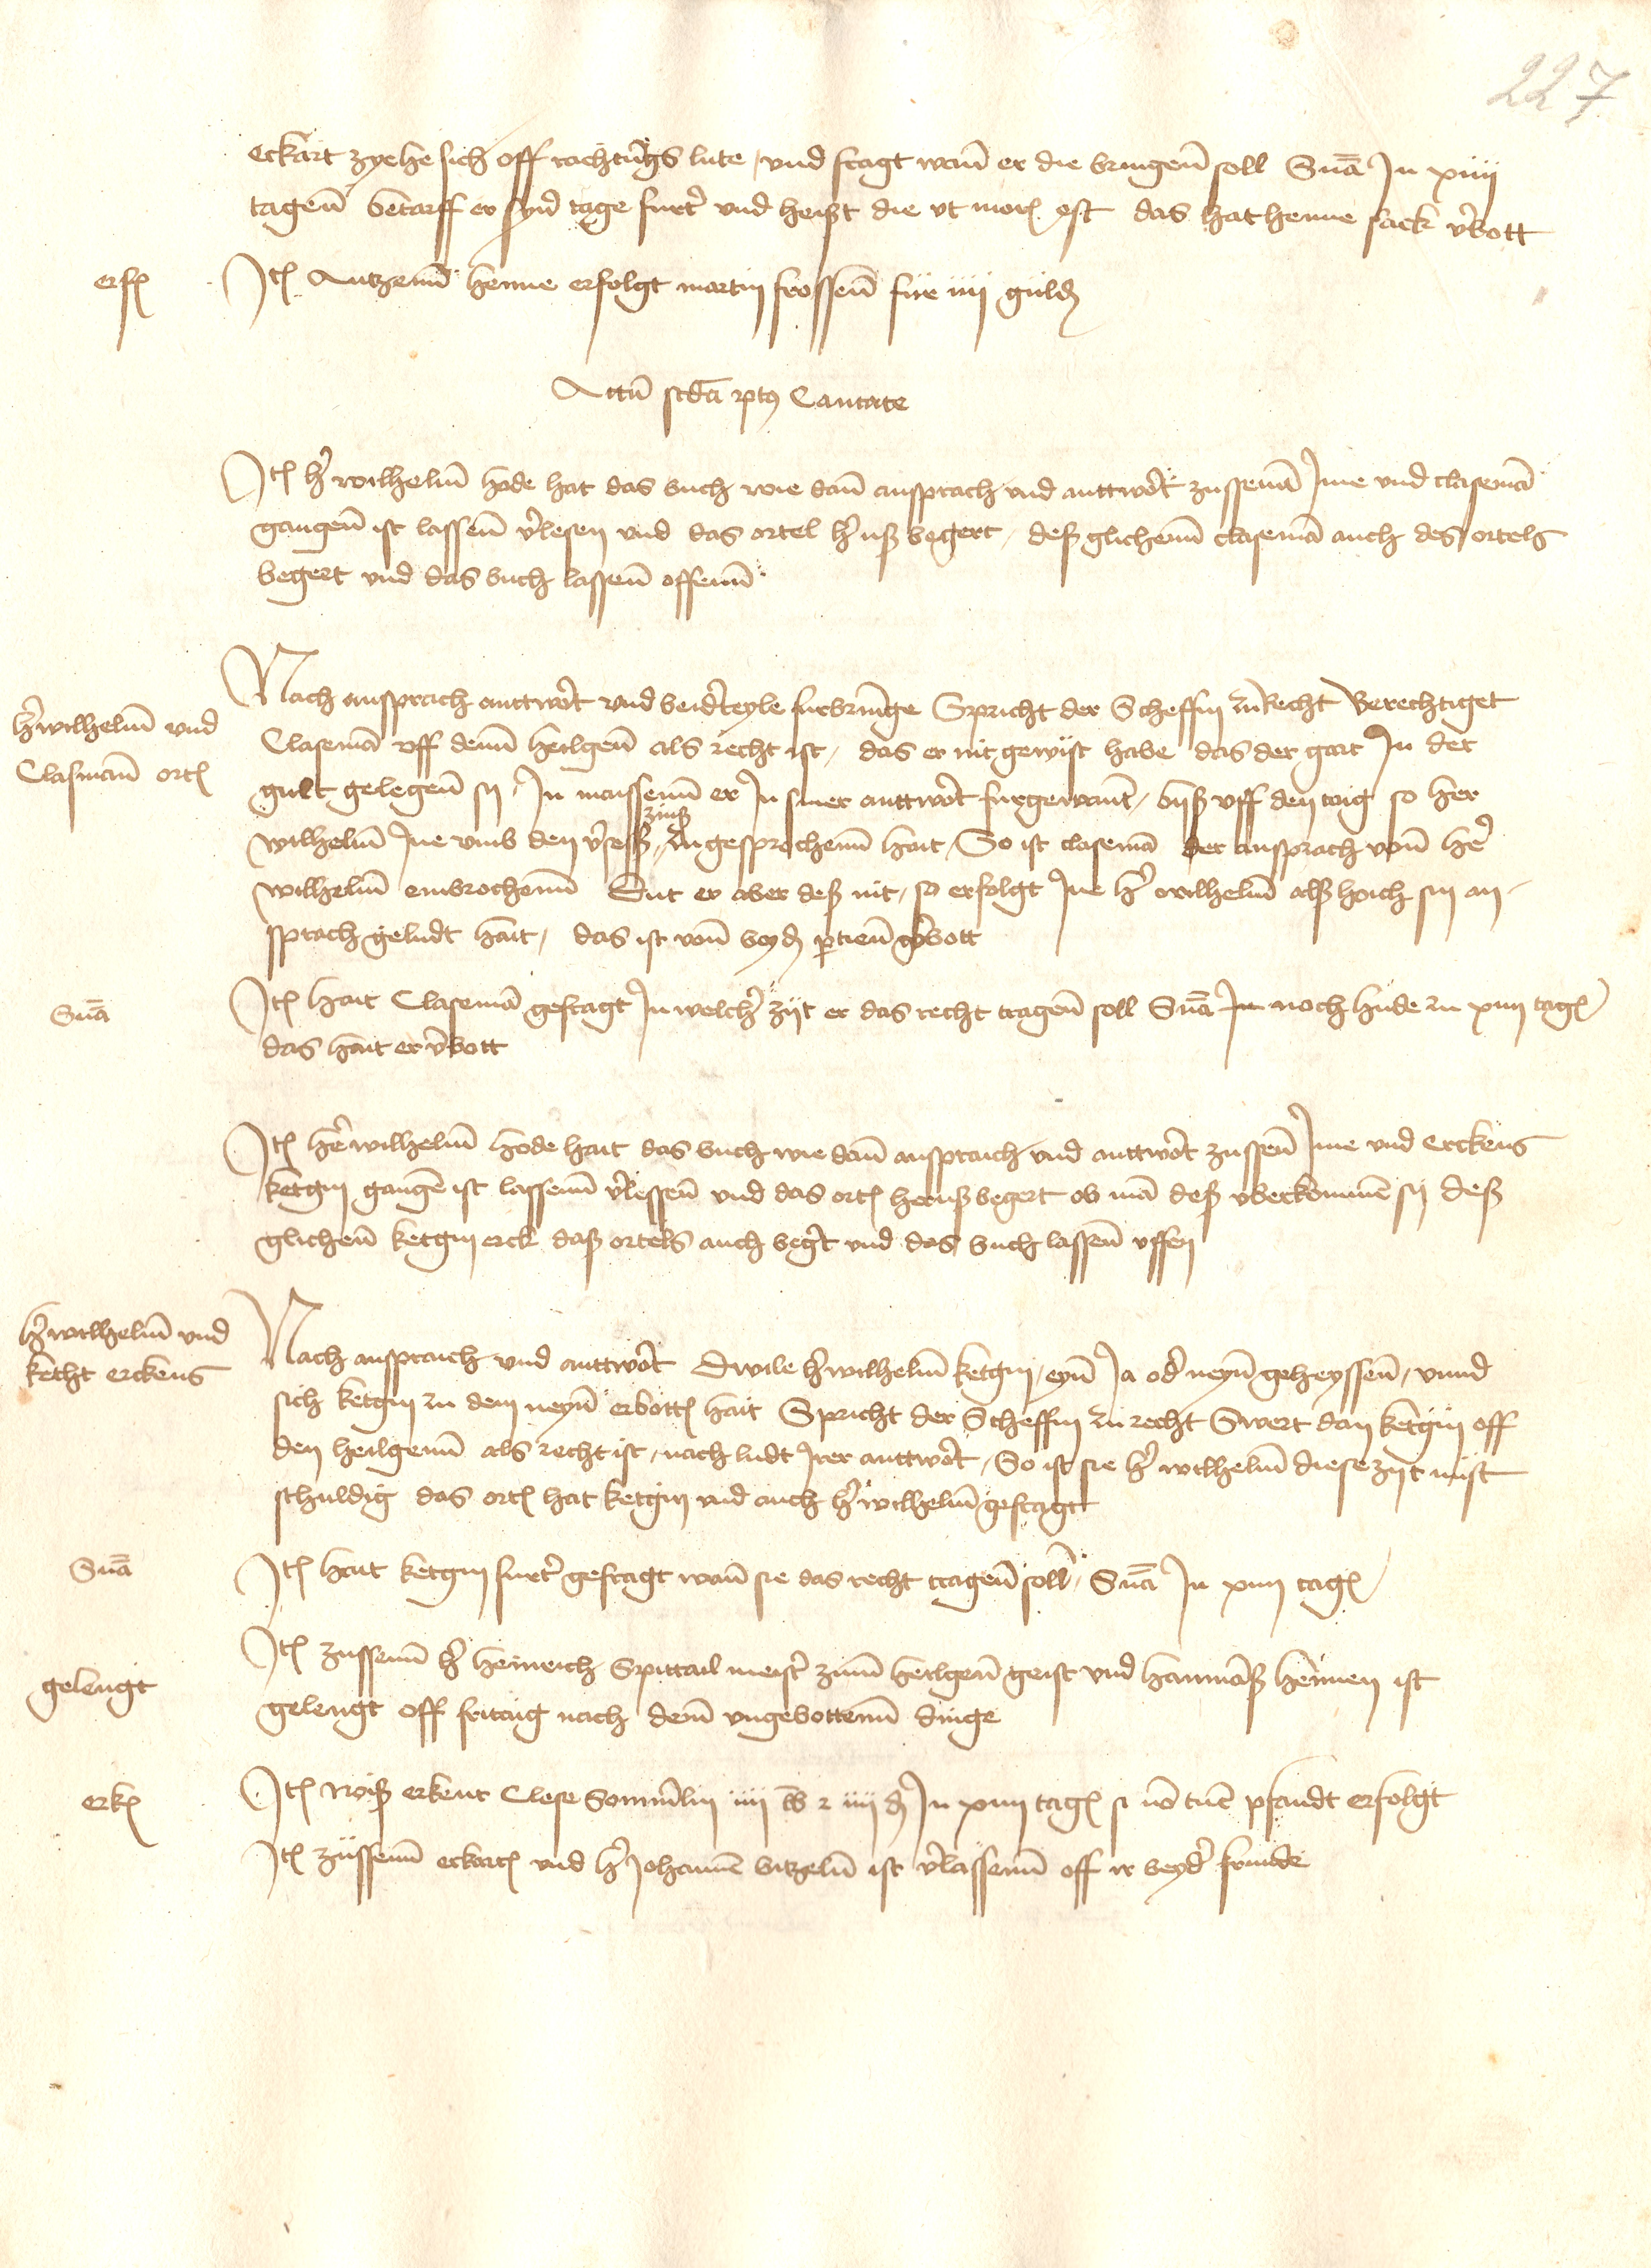 227
eckart zyehe sich off rachtu̅gs lute, vnd fragt wan̅ er die bringen̅ soll Sn̅a In xiiij
tagen̅ bedarff er syn̅ tage furt̉ und heißt die vt mor᷑ est das hat henne sack v̉bott
erf᷑
It᷑ Antzenn̅ henne erfolgt martin frossen̅ fur iiij guld᷑
Actu̅ scd̅a pt9 Cantate
It᷑ h̉ wilhelm̅ hode hat das buch wie dan̅ ansprach vnd anttwo᷑t zussen̅ Ime vnd clasema̅
gangen̅ ist lassen̅ v̉lesen und das ortel h̉uß begert, deß glichenn̅ clasema̅ auch des ortels
begert vnd das buch lassen̅ offenn̅
h̉ wilhelm̅ vnd
Clasman̅ ort᷑
Nach ansprach anttwo᷑t vnd beid̉ teyle furbringe Spricht der Scheffin zu Recht Berechtiget
Clasema̅ vff denn̅ heilgen̅ als recht ist, das er nit gewist habe das der gart In der
gult gelegen̅ sij, In maissenn̅ er In siner anttwo᷑t furgewant, biß vff den tag so her
zinß
wilhelm̅ Ine vmb den v̉sess, angesprochenn̅ hait, So ist clasema̅ der ansprach von̅ hẻ
wilhelm̅ embrochenn̅ Dut er aber deß nit, so erfolgt Ine h̉ wilhelm̅ alß hoich sin an-
sprach geludt hait, das ist von̅ beyd᷑ ptien̅ v̉bott
Sn̅a
It᷑ hait Clasema̅ gefragt In welch̉ zijt er das recht tragen̅ soll Sn̅a In noch hude zu xiiij tag᷑
das hait er v̉bott
It᷑ hẻ wilhelm̅ hode hait das buch wie dan̅ anspraich vnd anttwo᷑t zussen̅ Ime vnd Erckens
ketgin gange̅ ist lassenn̅ v̉lessen̅ vnd das ort᷑ heruß begert ob ma̅ deß vberkomme̅ sij deß
glichen̅ ketgin erck daß ortels auch beg̉t vnd das buch lassen̅ vffen
h̉ wilhelm̅ vnd
ketht erckens
Nach anspraich vnd anttwo᷑t Dwile h̉ wilhelm̅ ketgin, eyn̅ Ja od̉ neyn̅ geheyssen̅, vnnd
sich ketgin zu dem neyn̅ erbott᷑ hait Spricht der Scheffin zu recht Swert dan ketgin off
den heilgenn̅ als recht ist, nach ludt Irer anttwo᷑t, So ist sie h̉ wilhelm̅ diese zijt nust
schuldig das ort᷑ hat ketgin vnd auch h̉ wilhelm̅ gefragt
Sn̅a
It᷑ hait ketgin furt̉ gefragt wan̅ sie das recht tragen̅ soll, Sn̅a In xiiij tag᷑
gelengt
It᷑ zussenn̅ h̉ heinrich Spittail meist̉ zum̅ heilgen̅ geist vnd hanma̅ß hennen ist
gelengt off fritaig nach dem̅ vngebottenn̅ dinge
erk᷑
It᷑ Roiß erkent Clese Som̅lin iiij lb 2 iiij ß In xiiij tag᷑ si no̅ tu̅c pfandt erfolgt
It᷑ zussenn̅ eckart᷑ vnd h̉ Johanne̅ bitzeln̅ ist v̉lassenn̅ off ir beyd̉ frunde